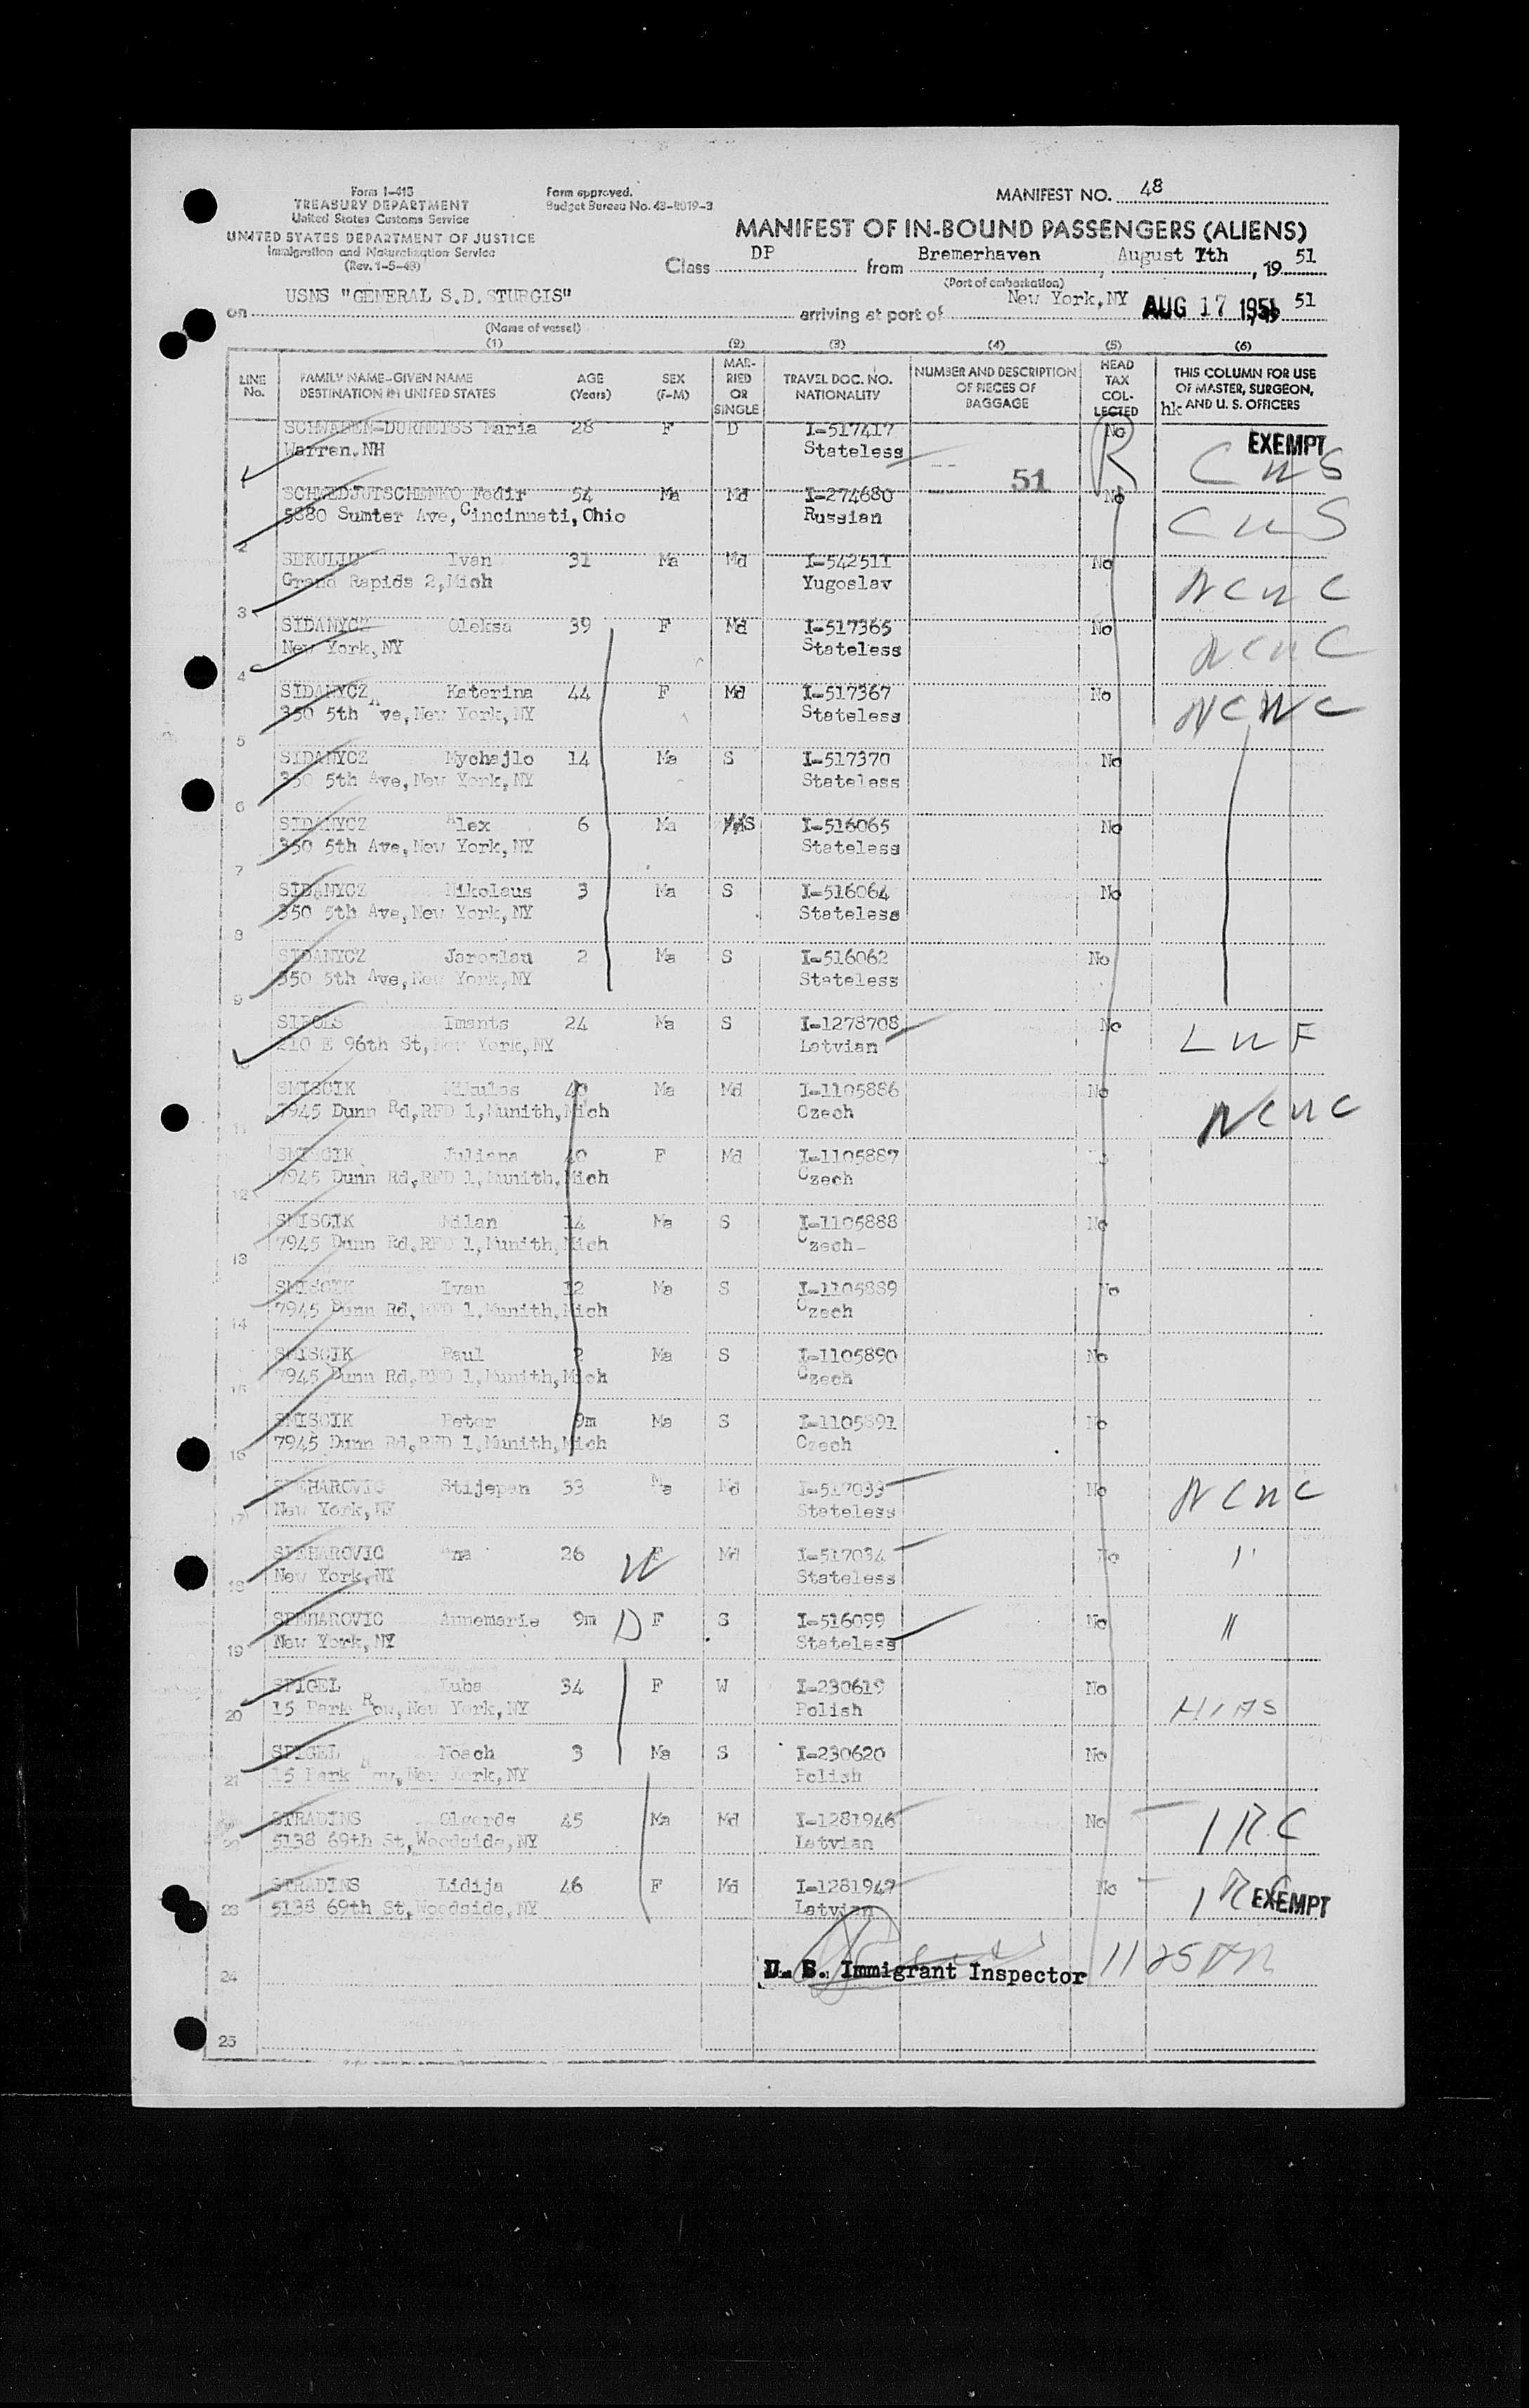 Form I-415
TREASURY DEPARTMENT
United States Customs Service
UNITED STATES DEPARTMENT OF JUSTICE
Immigration and Naturalization Service
(Rev. 1-5-48)
Form approved.
Budget Bureau No. 43-R019-3
MANIFEST NO. 48
MANIFEST OF IN-BOUND PASSENGERS (ALIENS)
Class DP from Bremerhaven, August 7th, 19 51
(Port of embarkation)
on USNS "GENERAL S.D.STURGIS" arriving at port of New York,NY AUG 17 1951 51
(Name of vessel)
(1) (2) (3) (4) (5) (6)
LINE No. FAMILY NAME-GIVEN NAME DESTINATION IN UNITED STATES AGE (Years) SEX (F-M) MARRIED OR SINGLE TRAVEL DOC. NO. NATIONALITY NUMBER AND DESCRIPTION OF PIECES OF BAGGAGE HEAD TAX COLLECTED THIS COLUMN FOR USE OF MASTER, SURGEON, AND U. S. OFFICERS
hk
Maria 28 F D I-517417 No EXEMPT
1 Warren.NH Stateless 51 R C W S
SCHWEDJUTSCHENKO Fedir 54 Ma Md I-274680 No
2 5880 Sumter Ave,Cincinnati,Ohio Russian C W S
Ivan 31 Ma Md I-542511 No
3 Grand Rapids 2,Mich Yugoslav N C W C
SIDANYCZ Oleksa 39 F Md I-517365 No
4 New York,NY Stateless N C W C
SIDANYCZ Katerina 44 F Md I-517367 No
5 350 5th Ave,New York,NY Stateless N C W C
SIDANYCZ Mychajlo 14 Ma S I-517370 No
6 350 5th Ave,New York,NY Stateless
SIDANYCZ Alex 6 Ma S I-516065 No
7 350 5th Ave,New York,NY Stateless
SIDANYCZ Nikolaus 3 Ma S I-516064 No
8 350 5th Ave,New York,NY Stateless
SIDANYCZ Jaroslau 2 Ma S I-516062 No
9 350 5th Ave,New York,NY Stateless
SIPOLS Imants 24 Ma S I-1278708 No
10 210 E 96th St,New York,NY Latvian L W F
SMISCIK Mikulas 40 Ma Md I-1105886 No
11 7945 Dunn Rd,RFD 1,Munith,Mich Czech N C W C
SMISCIK Juliana 40 F Md I-1105887 No
12 7945 Dunn Rd,RFD 1,Munith,Mich Czech
SMISCIK Milan 14 Ma S I-1105888 No
13 7945 Dunn Rd,RFD 1,Munith,Mich Czech
SMISCIK Ivan 12 Ma S I-1105889 No
14 7945 Dunn Rd,RFD 1,Munith,Mich Czech
SMISCIK Paul 2 Ma S I-1105890 No
15 7945 Dunn Rd,RFD 1,Munith,Mich Czech
SMISCIK Peter 9m Ma S I-1105891 No
16 7945 Dunn Rd,RFD 1,Munith,Mich Czech
SPEHAROVIC Stijepan 33 Ma Md I-517033 No
17 New York,NY Stateless N C W C
SPEHAROVIC Ana 26 F Md I-517034 No "
18 New York,NY W Stateless
SPEHAROVIC Annemarie 9m D F S I-516099 No "
19 New York,NY Stateless
SPIGEL Luba 34 F W I-230619 No
20 15 Park Row,New York,NY Polish HIAS
SPIGEL Noach 3 Ma S I-230620 No
21 15 Park Row,New York,NY Polish
STRADINS Olgerds 45 Ma Md I-1281946 No
22 5138 69th St,Woodside,NY Latvian I R C
STRADINS Lidija 46 F Md I-1281947 No
23 5138 69th St,Woodside,NY Latvian I R C EXEMPT
24 U. S. Immigrant Inspector
25